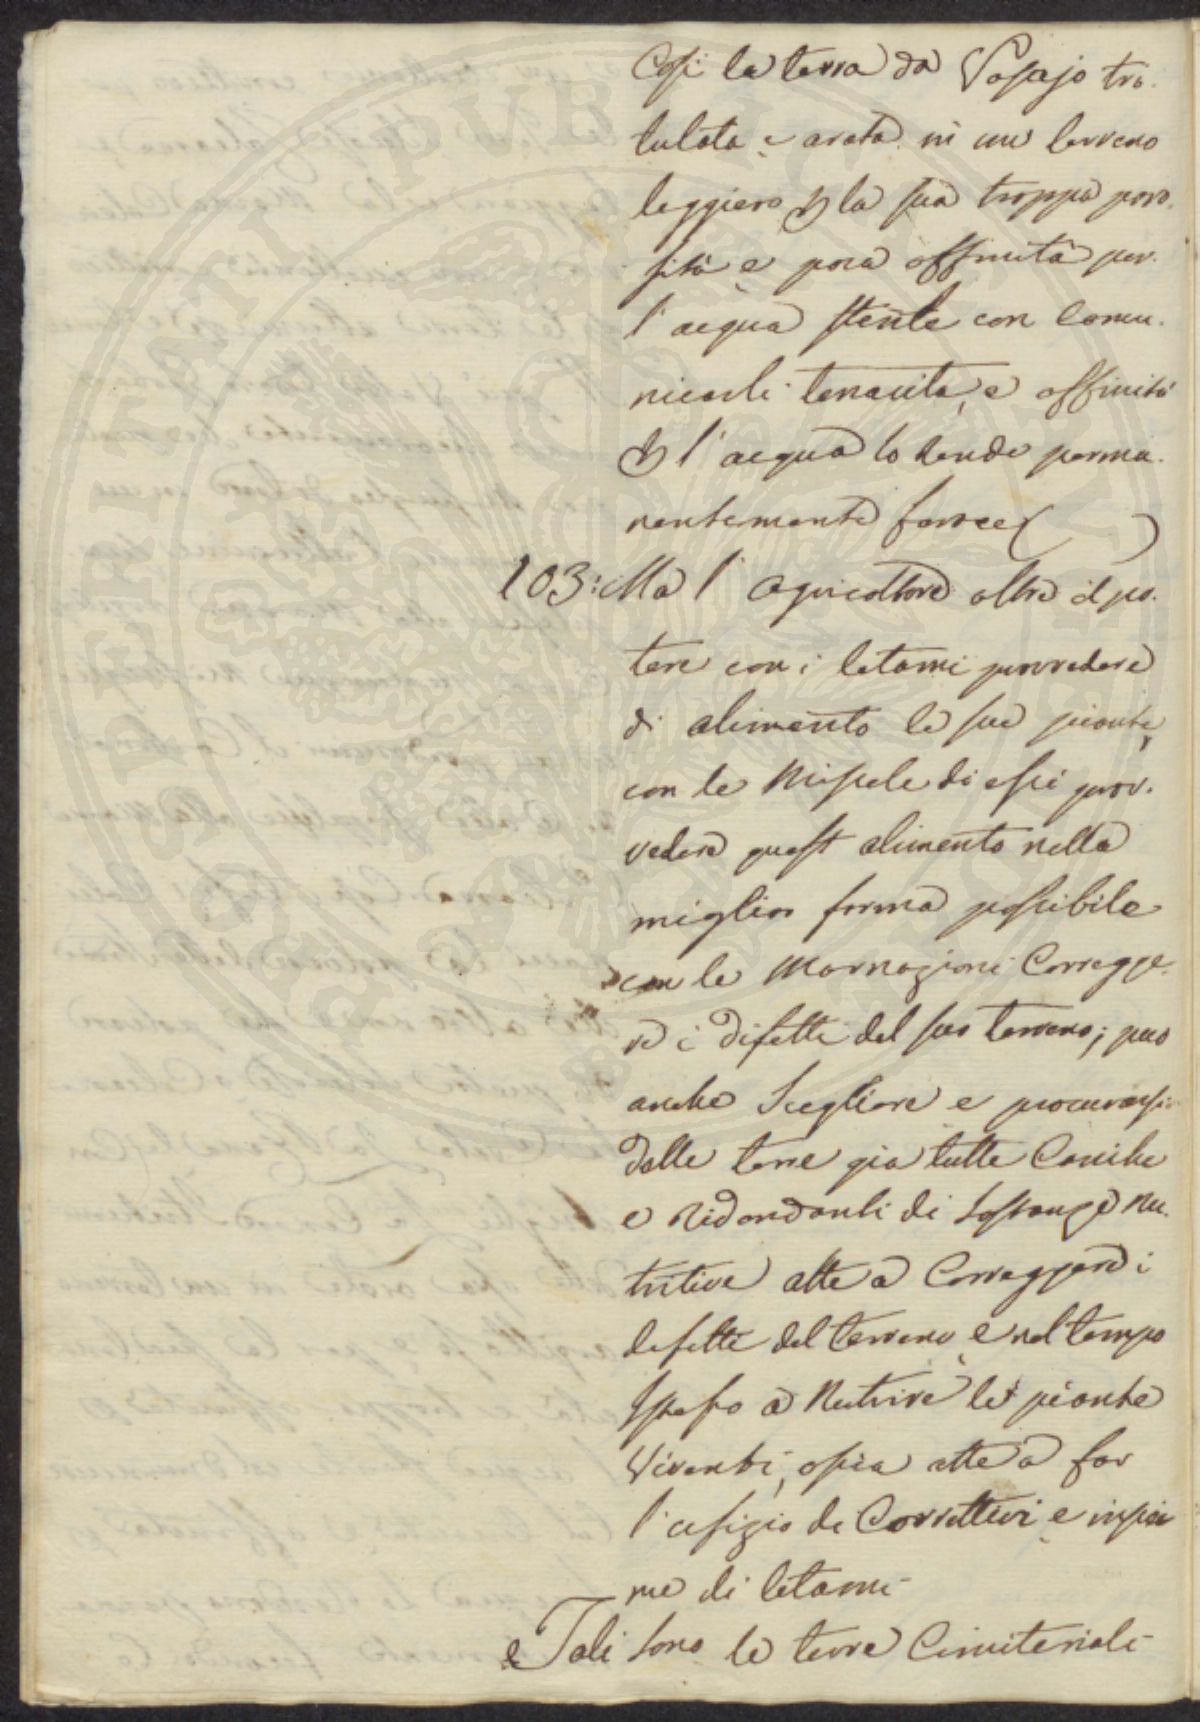 Così la terra da Vasajo tri-
tulata e arata in un terreno
leggiero per la sua troppa poro-
sità e poca affinità per
l'acqua stente con comu-
nicarli tenacita, e affinità
per l'acqua lo rende perma-
nentemente ferace (      )
103: Ma l'agricoltore oltre il po-
tere con i letami provvedere
di alimento le sue piante,
con le Miscele di essi prov-
vedere quest alimento nella
miglior forma possibile
con le Marnazioni Corregge-
re i difetti del suo terreno; può
anche Scegliere e procurarsi
delle terre gia tutte Cariche
e Ridondanti di Sostanze Nu-
tritive atte a Correggere i
difetti del terreno, e nel tempo
stesso a Nutrire le piante
Viventi, ossia atte a far
l'ufizio di Correttivi e insie-
me di letami
e Tali sono le terre Cimiteriali
PROSPERITATI PUBLICAE